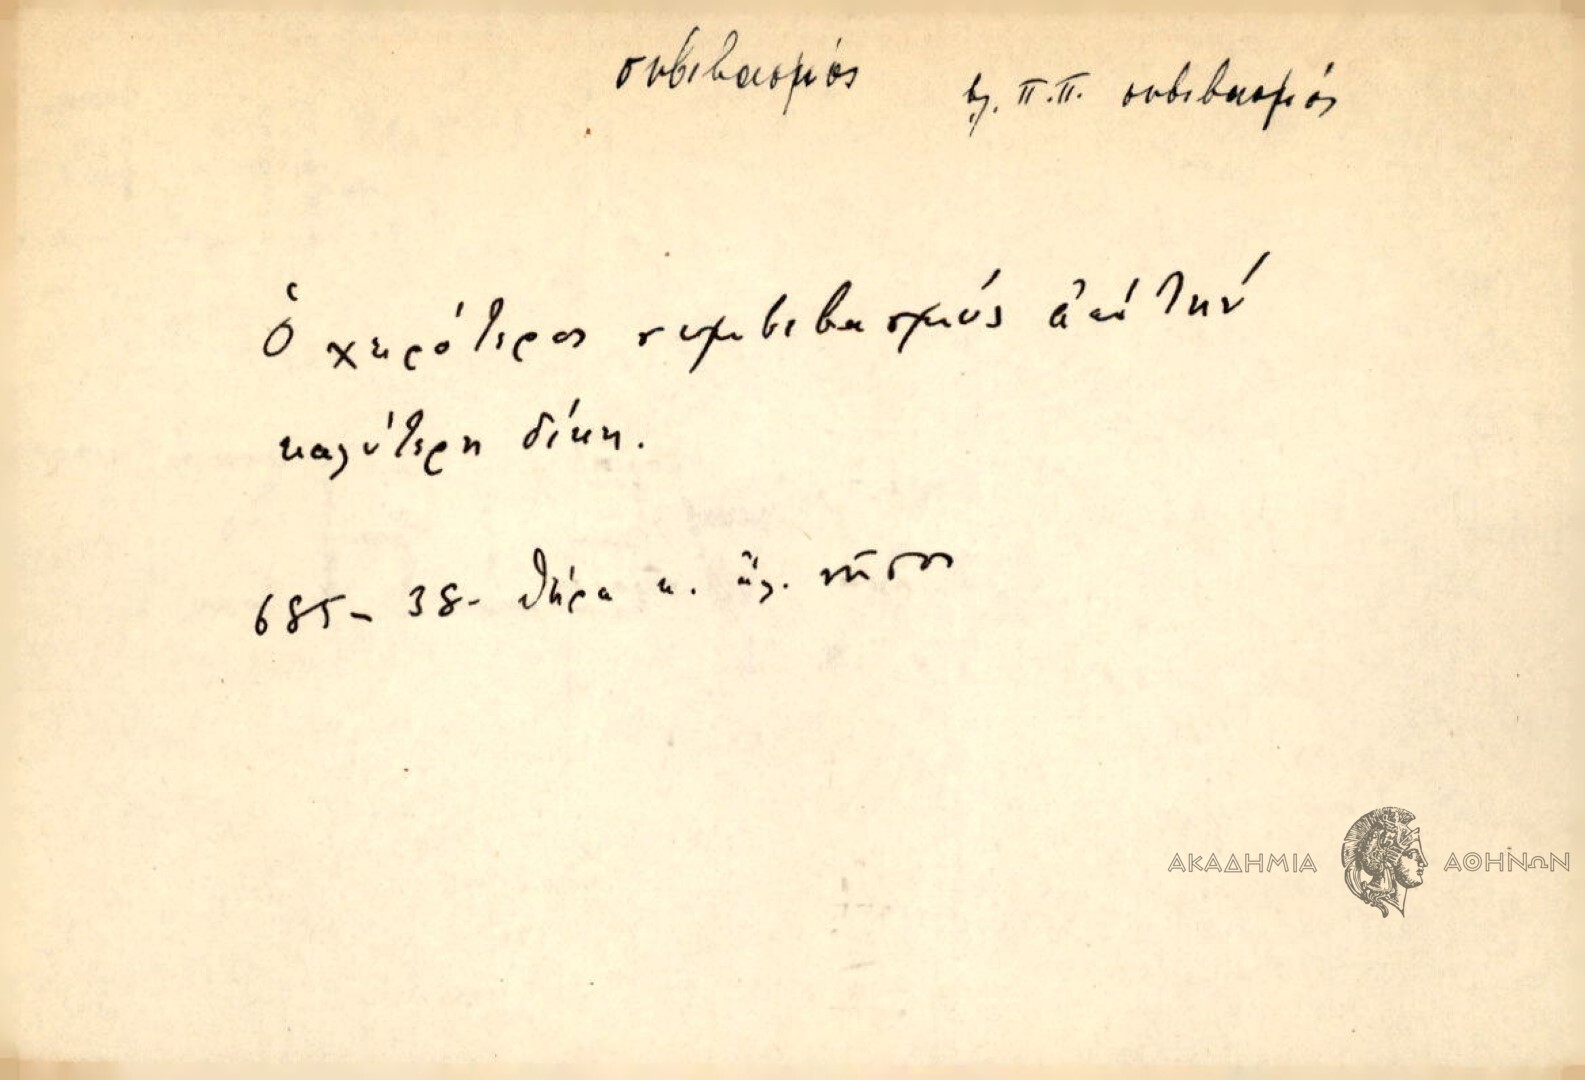 συβιβασμός βλ. Π.Π. συβιβασμός
Ὁ χειρότερος συμβιβασμός ἀπό τήν
καλύτερη δίκη.
685 – 38 – Θήρα κ. ἄλ. νῆσοι
ΑΚΑΔΗΜΙΑ ΑΘΗΝΩΝ